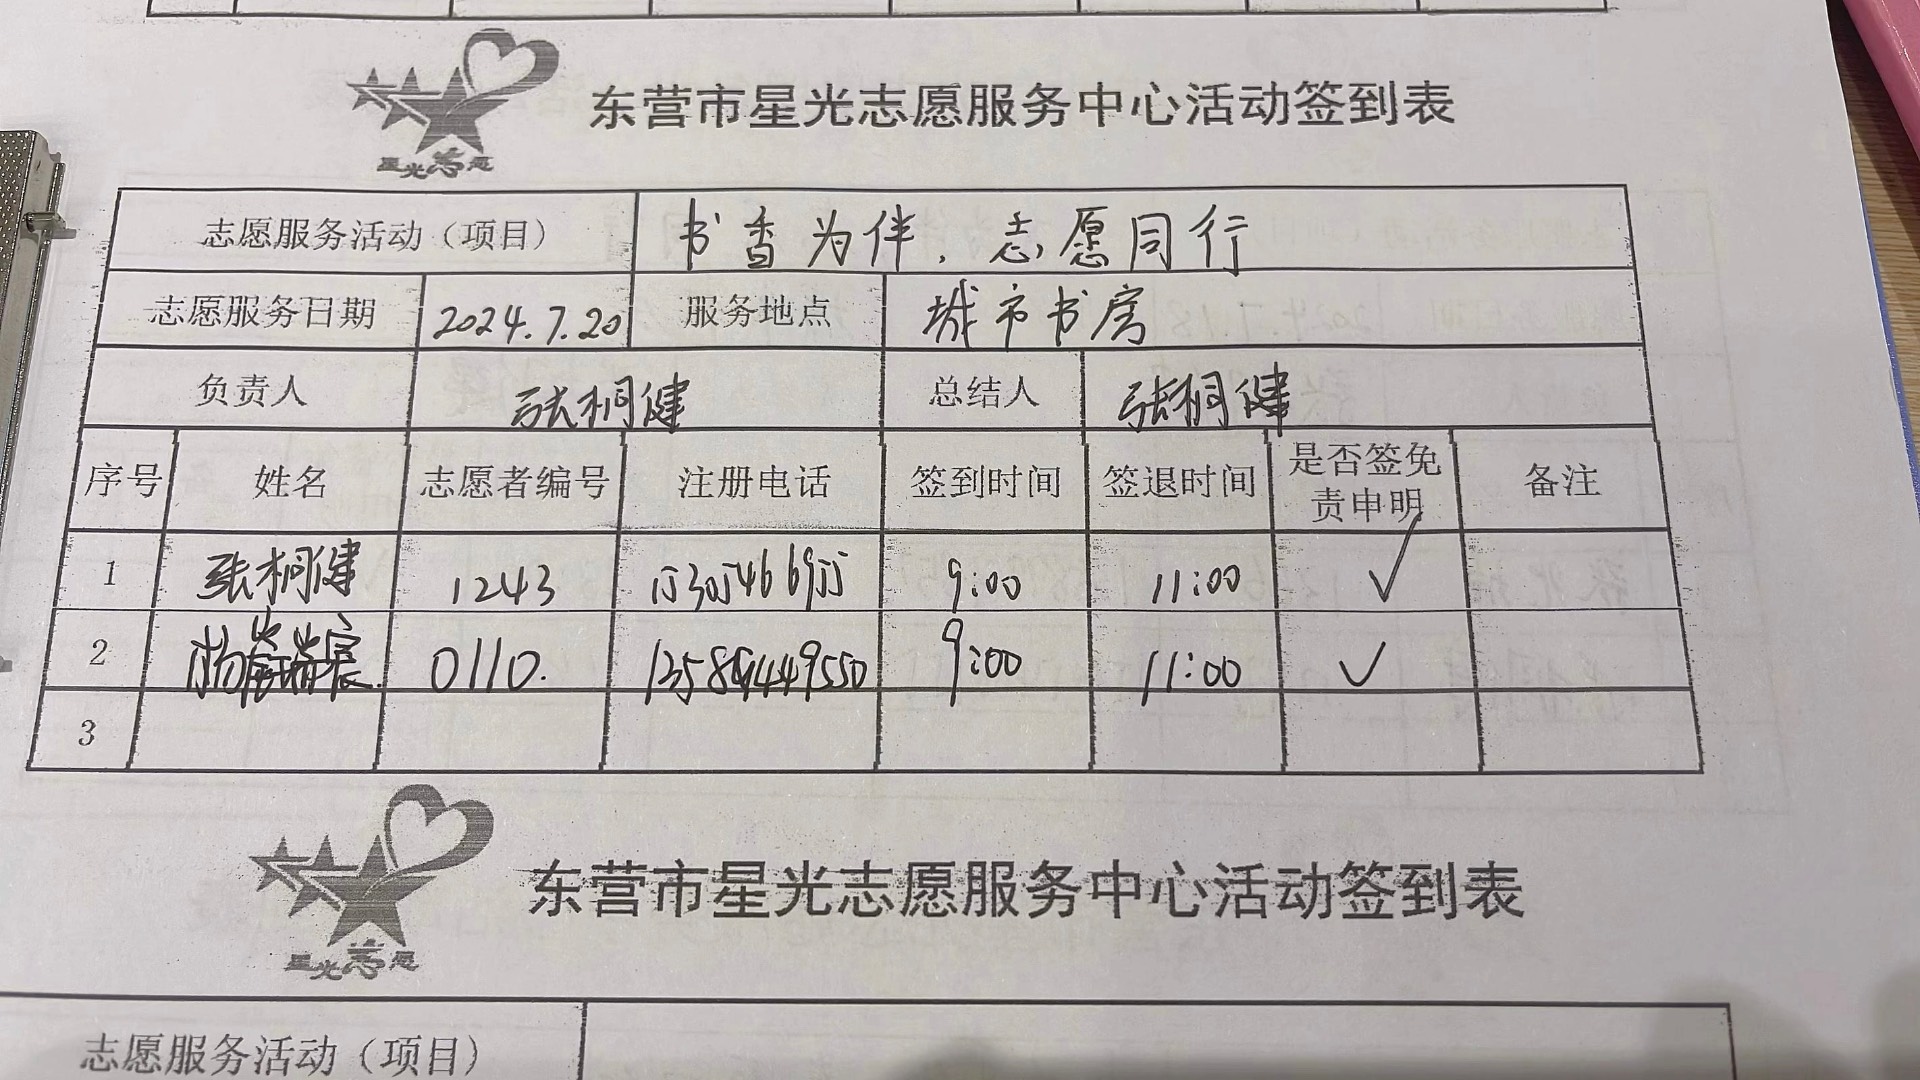 东营市星光志愿服务中心活动签到表
星光志愿
志愿服务活动（项目） 书香为伴，志愿同行
志愿服务日期 2024.7.20 服务地点 城市书房
负责人 张桐健 总结人 张桐健
序号 姓名 志愿者编号 注册电话 签到时间 签退时间 是否签免责申明 备注
1 张桐健 1243 9:00 11:00 ✓
2 0110. 9:00 11:00 ✓
3
东营市星光志愿服务中心活动签到表
星光志愿
志愿服务活动（项目）